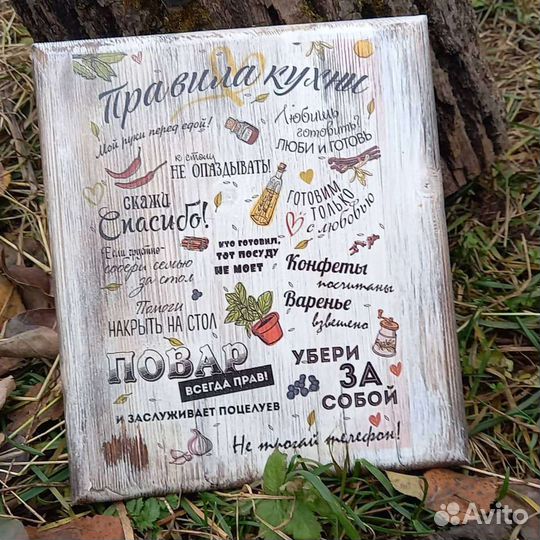 Правила кухни
Мой руки перед едой!
Любишь
готовить?
ЛЮБИ И ГОТОВЬ
к столу
НЕ ОПАЗДЫВАТЬ!
СКАЖИ
Спасибо!
ГОТОВИМ
ТОЛЬКО
с любовью
Если грустно -
собери семью
за стол
КТО ГОТОВИЛ,
ТОТ ПОСУДУ
НЕ МОЕТ
Конфеты
посчитаны
Варенье
взвешено
Помоги
НАКРЫТЬ НА СТОЛ
ПОВАР
ВСЕГДА ПРАВ!
И ЗАСЛУЖИВАЕТ ПОЦЕЛУЕВ
УБЕРИ
ЗА
СОБОЙ
Не трогай телефон!
Avito